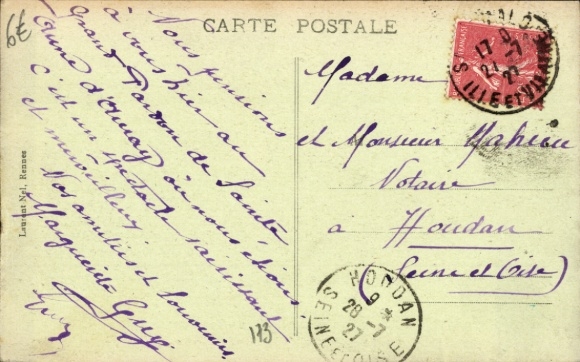 6€
CARTE POSTALE
Nous pensions
à vous hier au
grand Pardon de Sainte
Anne d'Auray où nous étions
c'est un spectacle saisissant
et merveilleux
Nos amitiés et souvenirs
Marguerite Guy
Madame
et Monsieur Maheu
Notaire
à Houdan
(Seine et Oise)
17 9
27-7
27
ILLE ET VILAINE
HOUDAN
9
28-7
27
SEINE ET OISE
Laurent Nel, Rennes
113